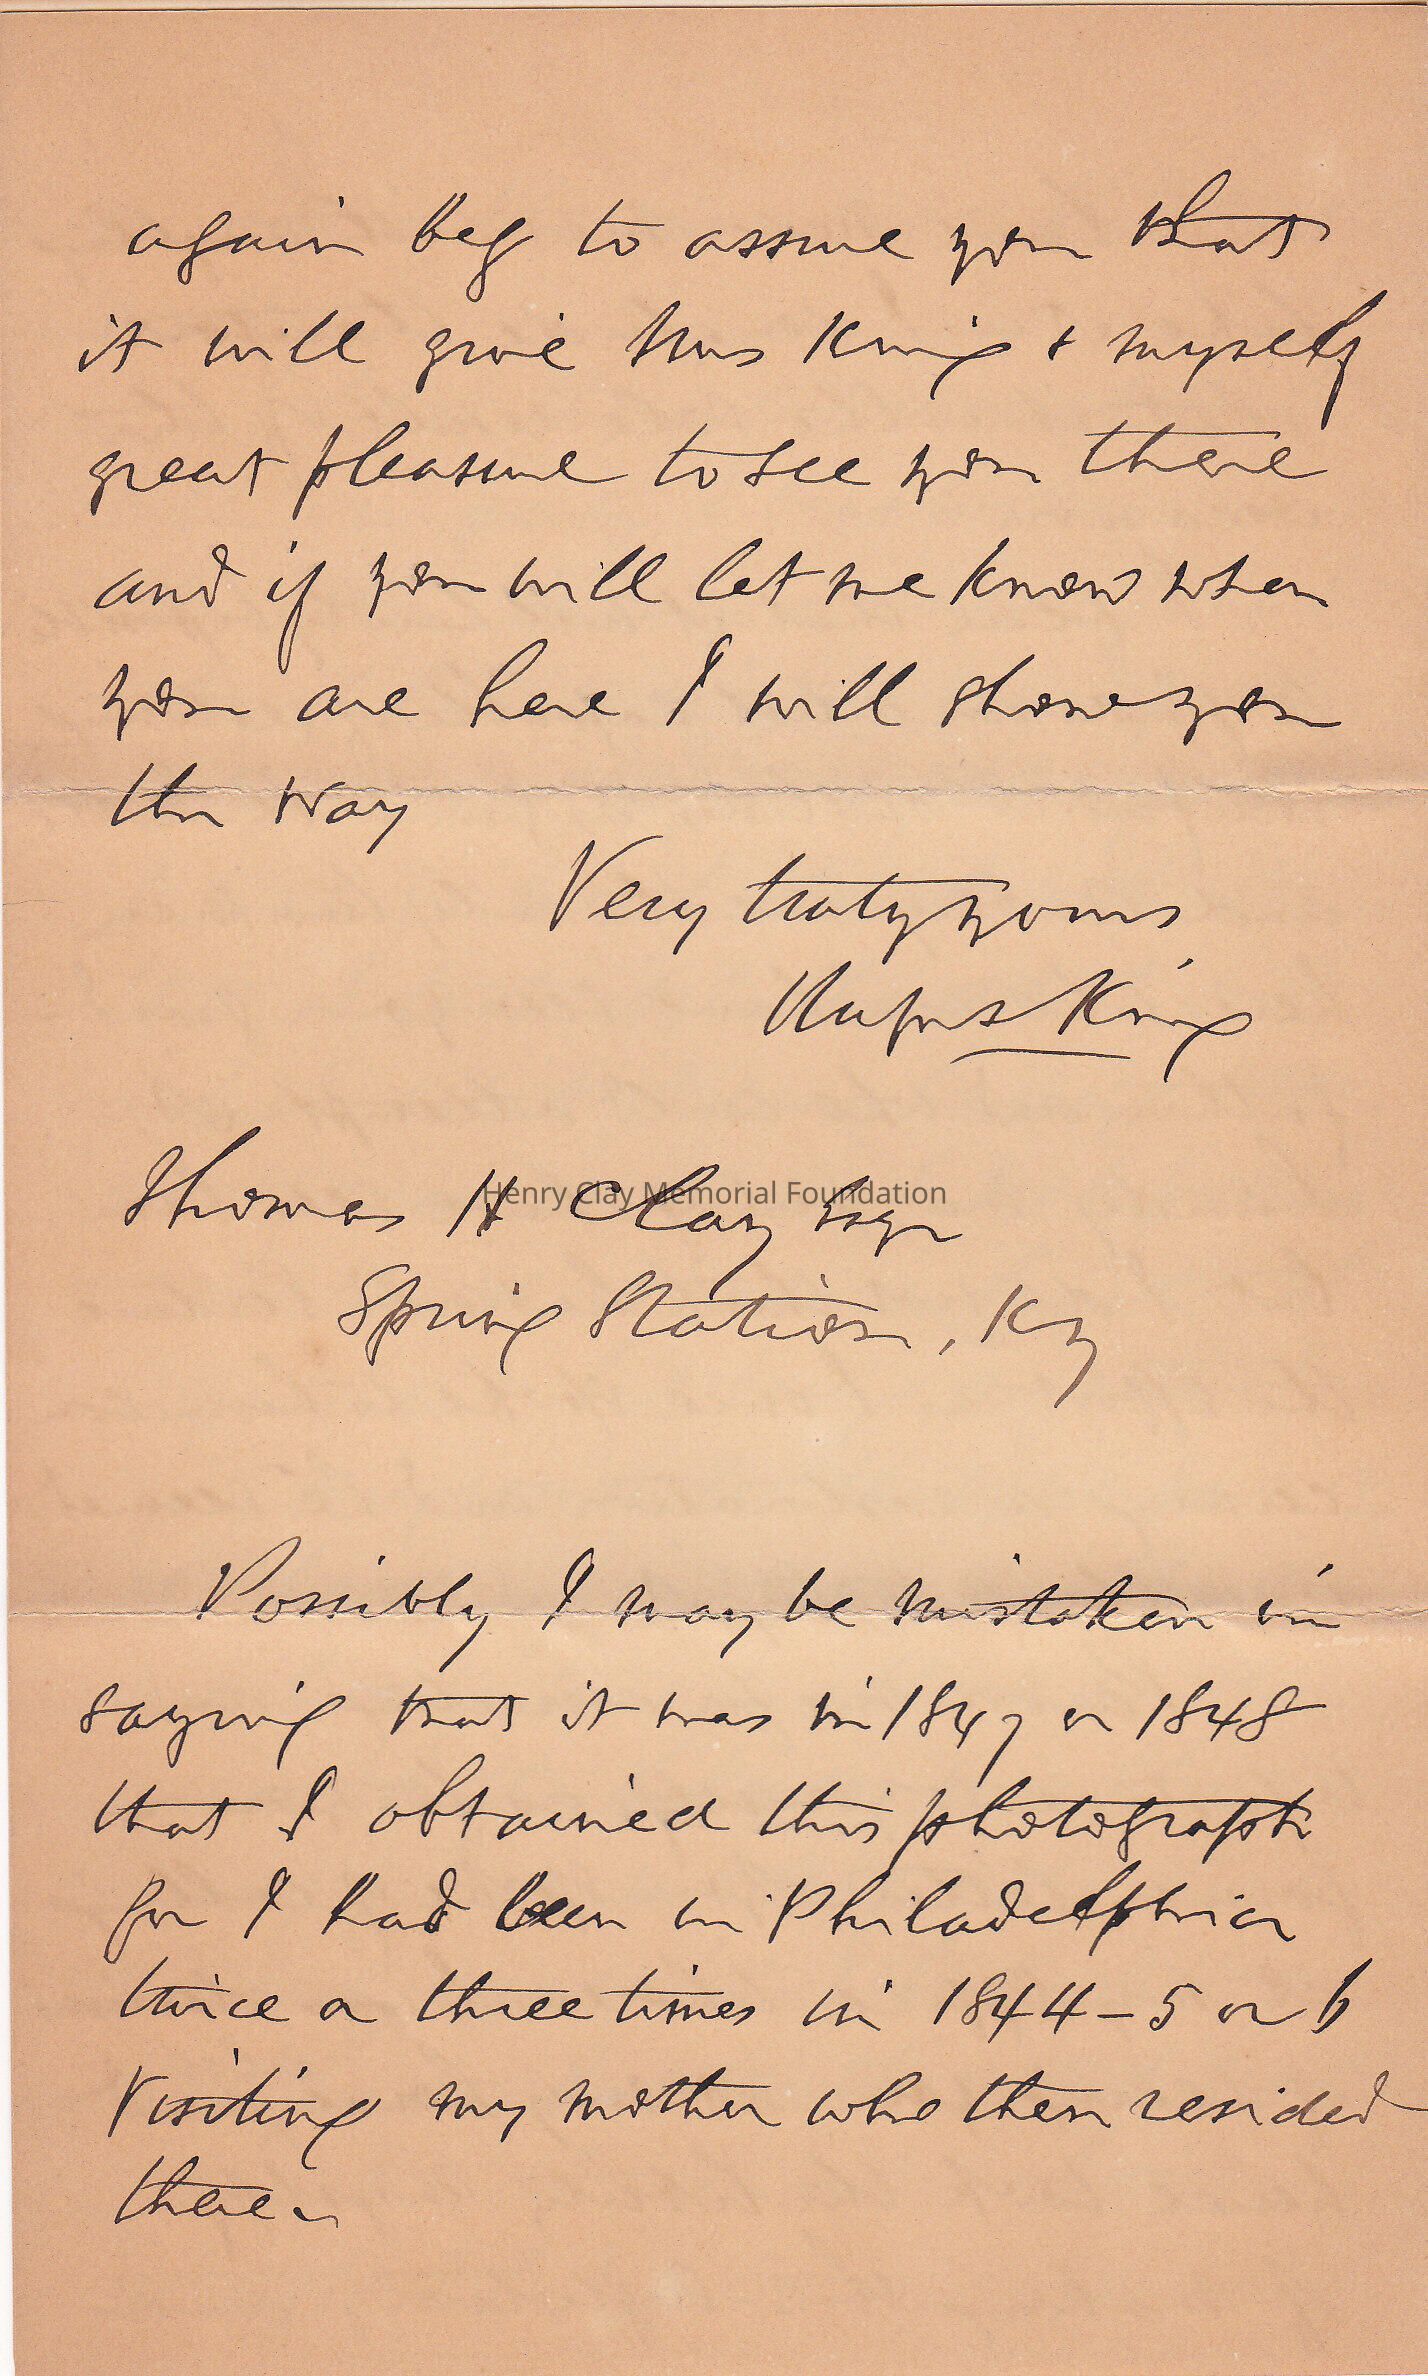 again beg to assure you that
it will give Mrs King & myself
great pleasure to see you there
and if you will let me know when
you are here I will show you
the way
Very truly yours
Rufus King
Henry Clay Memorial Foundation
Thomas H Clay Esqr
Spring Station, Ky
Possibly I may be mistaken in
saying that it was in 1847 or 1848
that I obtained this photograph
for I had been in Philadelphia
twice or three times in 1844-5 or 6
visiting my mother who then resided
there